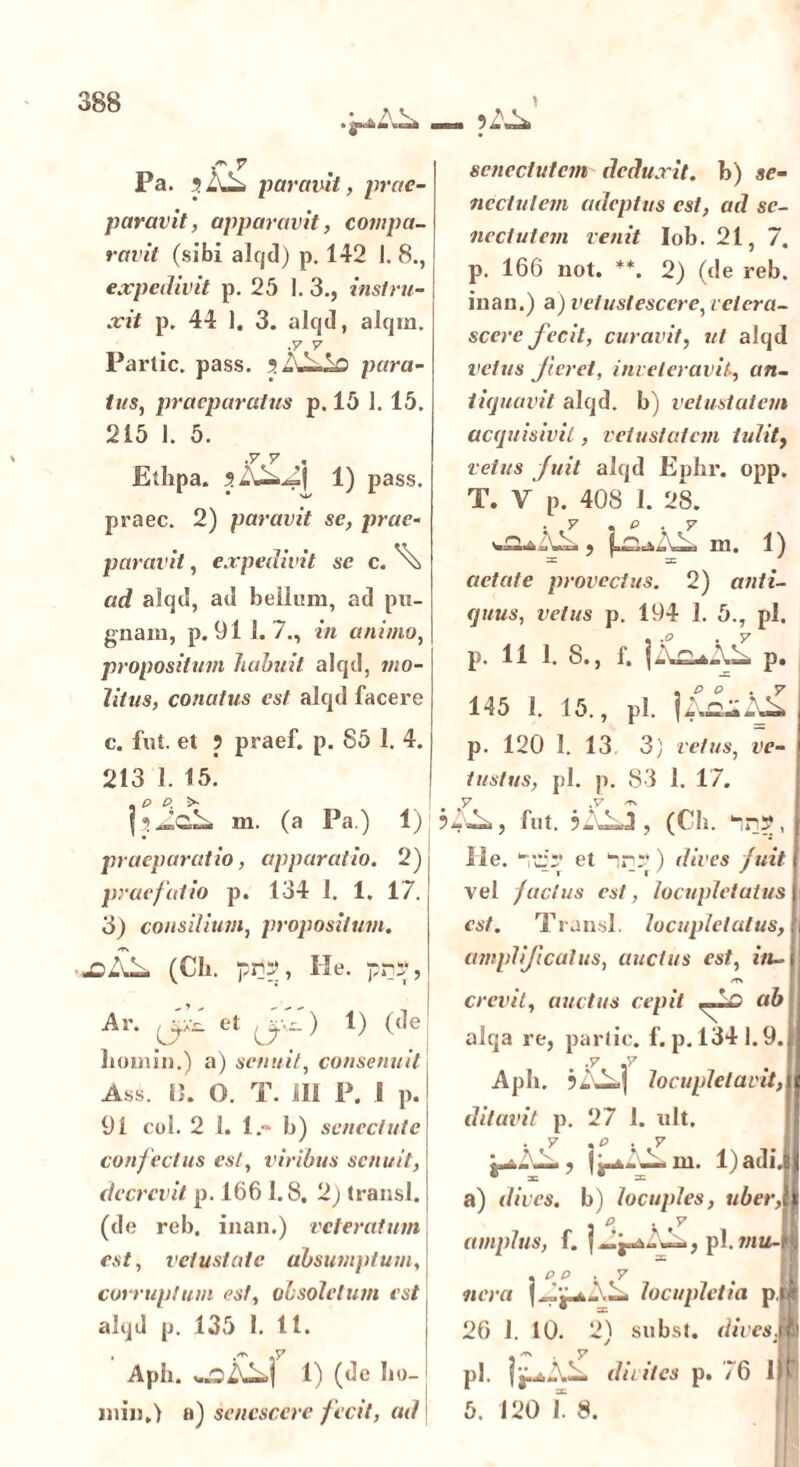 388
ܥܬܕ — ܥܬܝܪ.
Pa. ܥܰܬܶܕ paravit, prae-
paravit, apparavit, compa-
ravit (sibi alqd) p. 142 l. 8.,
expedivit p. 25 l. 3., instru-
xit p. 44 l. 3. alqd, alqm.
Partic. pass. ܡܥܰܬܰܕ para-
tus, praeparatus p. 15 l. 15.
215 l. 5.
Ethpa. ܐܶܬܥܰܬܰܕ 1) pass.
praec. 2) paravit se, prae-
paravit, expedivit se c. ܠ
ad alqd, ad bellum, ad pu-
gnam, p. 91 l. 7., in animo,
propositum habuit alqd, mo-
litus, conatus est alqd facere
c. fut. et ܕ praef. p. 85 l. 4.
213 l. 15.
ܥܽܘܬܳܕܳܐ m. (a Pa.) 1)
praeparatio, apparatio. 2)
praefatio p. 134 l. 1. 17.
3) consilium, propositum.
ܥܬܶܩ (Ch. עתק, He. עתק,
Ar. عتق et عتق) 1) (de
homin.) a) senuit, consenuit
Ass. B. O. T. III P. I p.
91 col. 2 l. 1. b) senectute
confectus est, viribus senuit,
decrevit p. 166 l. 8. 2) transl.
(de reb. inan.) veteratum
est, vetustate absumptum,
corruptum est, obsoletum est
alqd p. 135 l. 11.
Aph. ܐܰܥܬܶܩ 1) (de ho-
min.) a) senescere fecit, ad
senectutem deduxit. b) se-
nectutem adeptus est, ad se-
nectutem venit Iob. 21, 7.
p. 166 not. **. 2) (de reb.
inan.) a) vetustescere, vetera-
scere fecit, curavit, ut alqd
vetus fieret, inveteravit, an-
tiquavit alqd. b) vetustatem
acquisivit, vetustatem tulit,
vetus fuit alqd Ephr. opp.
T. V p. 408 l. 28.
ܥܰܬܝܩ, ܥܰܬܝܩܳܐ m. 1)
aetate provectus. 2) anti-
quus, vetus p. 194 l. 5., pl.
p. 11 l. 8., f. ܥܰܬܝܩܬܳܐ p.
145 l. 15., pl. ܥܰܬܝܩܳܬܳܐ
p. 120 l. 13 3) vetus, ve-
tustus, pl. p. 83 l. 17.
ܥܬܰܪ, fut. ܢܶܥܬܰܪ, (Ch. עתר,
He. עשר et עתר) dives fuit
vel factus est, locupletatus
est. Transl. locupletatus,
amplificatus, auctus est, in-
crevit, auctus cepit ܡܶܢ ab
alqa re, partic. f. p. 134 l. 9.
Aph. ܐܰܥܬܰܪ locupletavit,
ditavit p. 27 l. ult.
ܥܰܬܝܪ, ܥܰܬܝܪܳܐ m. 1) adi.
a) dives. b) locuples, uber,
amplus, f. ܥܰܬܝܪܬܳܐ, pl. mu-
nera ܥܰܬܝܪܳܬܳܐ locupletia p.
26 l. 10. 2) subst. dives.
pl. ܥܰܬܝܪܶܐ divites p. 76 l
5. 120 l. 8.